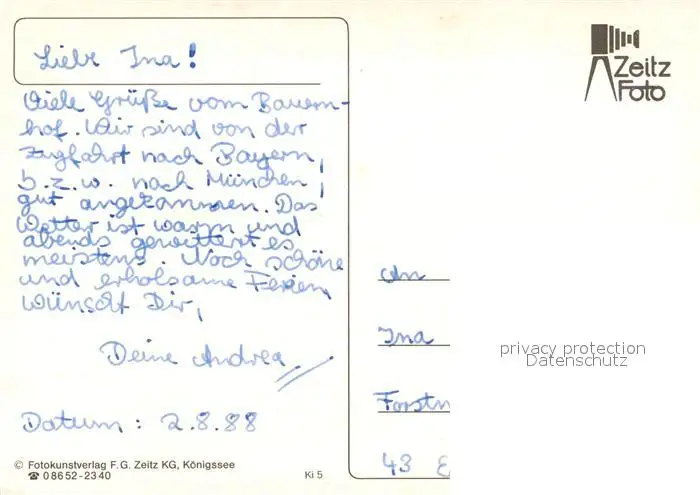 Liebe Ina!
Viele Grüße vom Bauern-
hof. Wir sind von der
Zugfahrt nach Bayern,
b.z.w. nach München,
gut angekommen. Das
Wetter ist warm und
abends gewittert es
meistens. Noch schöne
und erholsame Ferien,
wünscht Dir,
Deine Andrea
Datum: 2.8.88
© Fotokunstverlag F.G. Zeitz KG, Königssee
☎ 08652-2340
Ki 5
Zeitz
Foto
An
Ina
privacy protection
Datenschutz
Forstm
43 E